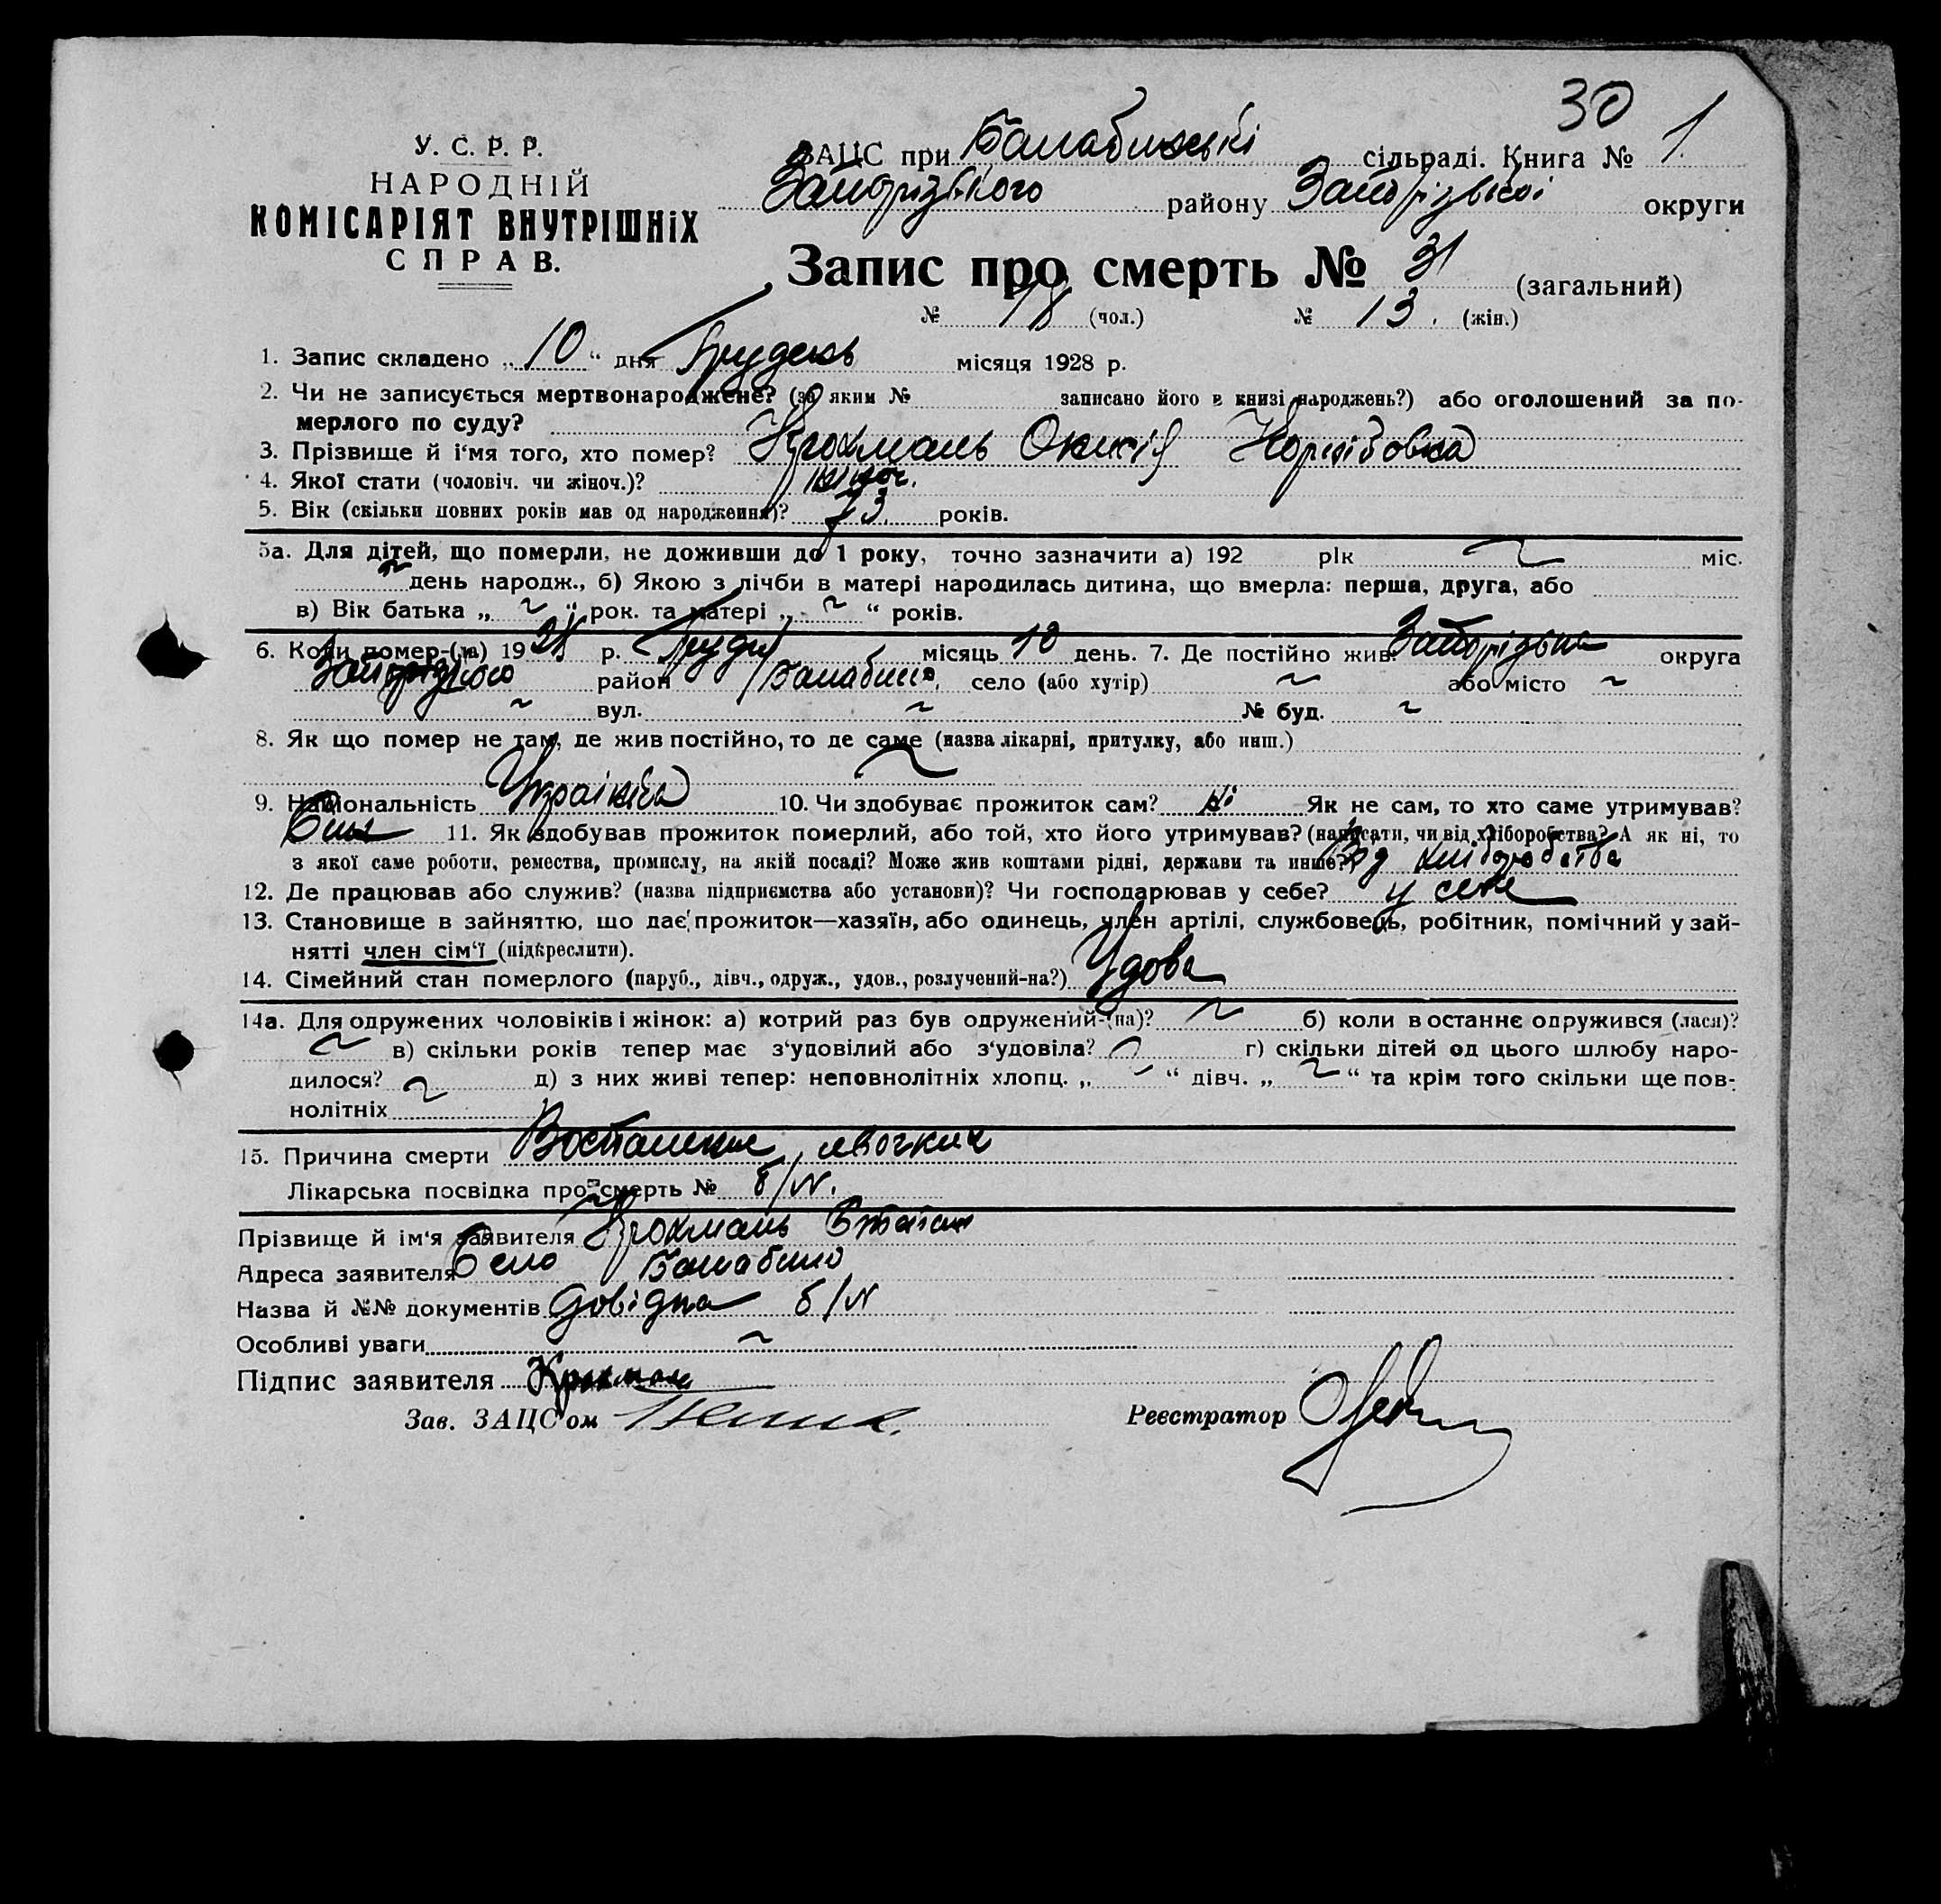 30
У. С. Р. Р.
НАРОДНІЙ
КОМІСАРІЯТ ВНУТРІШНіХ
СПРАВ.
ЗАЦС при Балабинські сільраді. Книга № 1
Запорізького району Запорізької округи
Запис про смерть № 31 (загальний)
№ 18 (чол.) № 13. (жін.)
1. Запис складено „ 10 “ дня Грудень місяця 1928 р.
2. Чи не записується мертвонароджене? (за яким № записано його в книзі народжень?) або оголошений за по-
мерлого по суду?
3. Прізвище й і‘мя того, хто помер? Крохмаль
4. Якої стати (чоловіч. чи жіноч.)? жіноч.
5. Вік (скільки повних років мав од народження)? 73 років.
5а. Для дітей, що померли, не доживши до 1 року, точно зазначити а) 192 рік ~ міс.
~ день народж., б) Якою з лічби в матері народилась дитина, що вмерла: перша, друга, або
в) Вік батька „ ~ “ рок. та матері „ ~ “ років.
6. Коли помер-(ла) 1928 р. Грудн місяць 10 день. 7. Де постійно жив: Запорізька округа
Запорізького район Балабино село (або хутір) ~ або місто ~
~ вул. ~ № буд. ~
8. Як що помер не там, де жив постійно, то де саме (назва лікарні, притулку, або инш.)
~
9. Національність Українка 10. Чи здобуває прожиток сам? ні Як не сам, то хто саме утримував?
Син 11. Як здобував прожиток померлий, або той, хто його утримував? (написати, чи від хліборобства? А як ні, то
з якої саме роботи, ремества, промислу, на якій посаді? Може жив коштами рідні, держави та инше?) Від хліборобства
12. Де працював або служив? (назва підприємства або установи)? Чи господарював у себе? у себе
13. Становище в зайняттю, що дає прожиток—хазяїн, або одинець, член артілі, службовець, робітник, помічний у зай-
нятті член сім‘ї (підкреслити).
14. Сімейний стан померлого (паруб., дівч., одруж., удов., розлучений-на?) Удова
14а. Для одружених чоловіків і жінок: а) котрий раз був одружений-(на)? ~ б) коли востаннє одружився (лася)?
~ в) скільки років тепер має з‘удовілий або з‘удовіла? ~ г) скільки дітей од цього шлюбу наро-
дилося? ~ д) з них живі тепер: неповнолітніх хлопц. „ ~ “ дівч. „ ~ “ та крім того скільки ще пов-
нолітніх
15. Причина смерти
Лікарська посвідка про смерть № б/№.
Прізвище й ім‘я заявителя Крохмаль
Адреса заявителя Село Балабино
Назва й №№ документів Довідка б/№
Особливі уваги ~
Підпис заявителя Крохмаль
Зав. ЗАЦС‘ом
Реєстратор